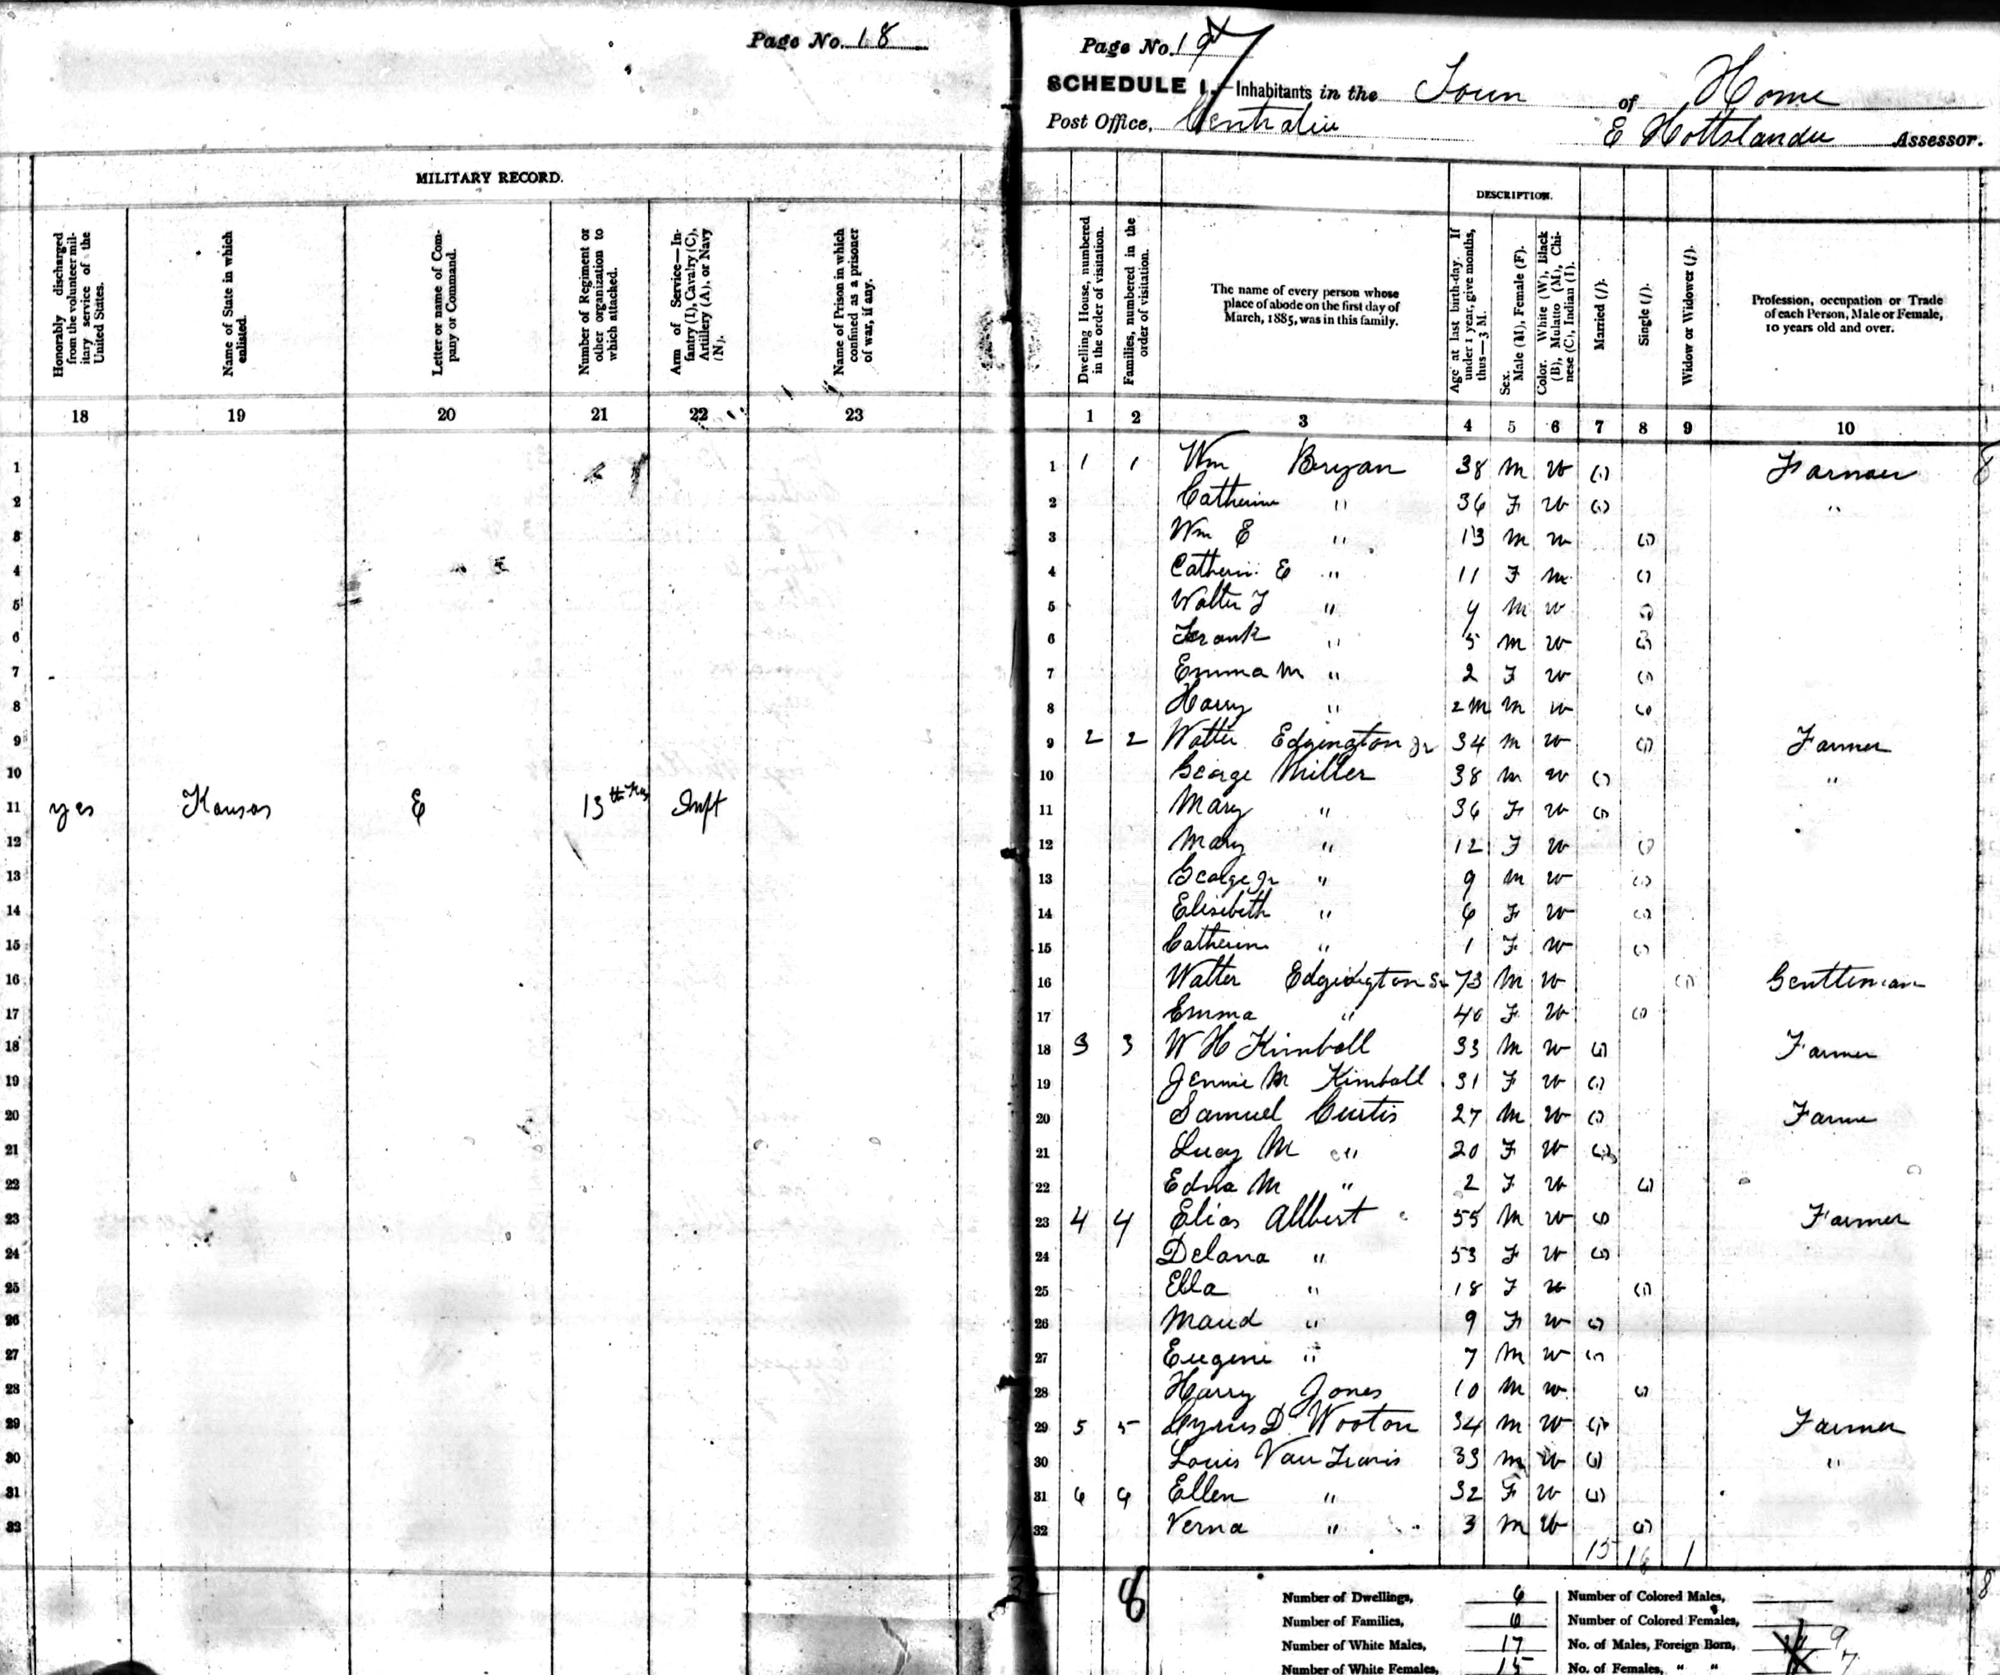 Page No. 18
MILITARY RECORD.
Honorably discharged from the volunteer military service of the United States.
Name of State in which enlisted.
Letter or name of Company or Command.
Number of Regiment or other organization to which attached.
Arm of Service—Infantry (I), Cavalry (C), Artillery (A), or Navy (N).
Name of Prison in which confined as a prisoner of war, if any.
18 19 20 21 22 23
1
2
3
4
5
6
7
8
9
10
11 yes Kansas E 13th Kas Inft
12
13
14
15
16
17
18
19
20
21
22
23
24
25
26
27
28
29
30
31
Page No. 19
SCHEDULE 1.—Inhabitants in the Town of Home
Post Office, Centralia E Assessor.
DESCRIPTION.
Dwelling House, numbered in the order of visitation.
Families, numbered in the order of visitation.
The name of every person whose place of abode on the first day of March, 1885, was in this family.
Age at last birth-day. If under 1 year, give months, thus—3 M.
Sex. Male (M), Female (F).
Color. White (W), Black (B), Mulatto (M), Chinese (C), Indian (I).
Married (/).
Single (/).
Widow or Widower (/).
Profession, occupation or Trade of each Person, Male or Female, 10 years old and over.
1 2 3 4 5 6 7 8 9 10
1 1 1 Wm Bryan 38 M W (1) Farmer
2 Catherine " 36 F W (1) "
3 Wm E " 13 M W (1)
4 Catherin E " 11 F W (1)
5 Walter J " 9 M W (1)
6 Frank " 5 M W (1)
7 Emma M " 2 F W (1)
8 Harry " 2M M W (1)
9 2 2 Walter Edgington Jr 34 M W (1) Farmer
10 George Miller 38 M W (1) "
11 Mary " 36 F W (1)
12 Mary " 12 F W (1)
13 George Jr " 9 M W (1)
14 Elisibeth " 6 F W (1)
15 Catherin " 1 F W (1)
16 Walter Edgington Sr 73 M W (1) Gentleman
17 Emma " 40 F W (1)
18 3 3 W H Kimball 33 M W (1) Farmer
19 Jennie M Kimball 31 F W (1)
20 Samuel Curtis 27 M W (1) Farme
21 Lucy M " 20 F W (1)
22 Edna M " 2 F W (1)
23 4 4 Elias Allbert 55 M W (1) Farmer
24 Delana " 53 F W (1)
25 Ella " 18 F W (1)
26 Maud " 9 F W (1)
27 Eugene " 7 M W (1)
28 Harry Jones 10 M W (1)
29 5 5 Cyrus D Wooton 34 M W (1) Farmer
30 Louis Van 33 M W (1) "
31 6 6 Ellen " 32 F W (1)
32 Verna " 3 M W (1)
15 16 1
8
Number of Dwellings, 6 Number of Colored Males,
Number of Families, 6 Number of Colored Females,
Number of White Males, 17 No. of Males, Foreign Born, 9
Number of White Females, 15 No. of Females, " " 7